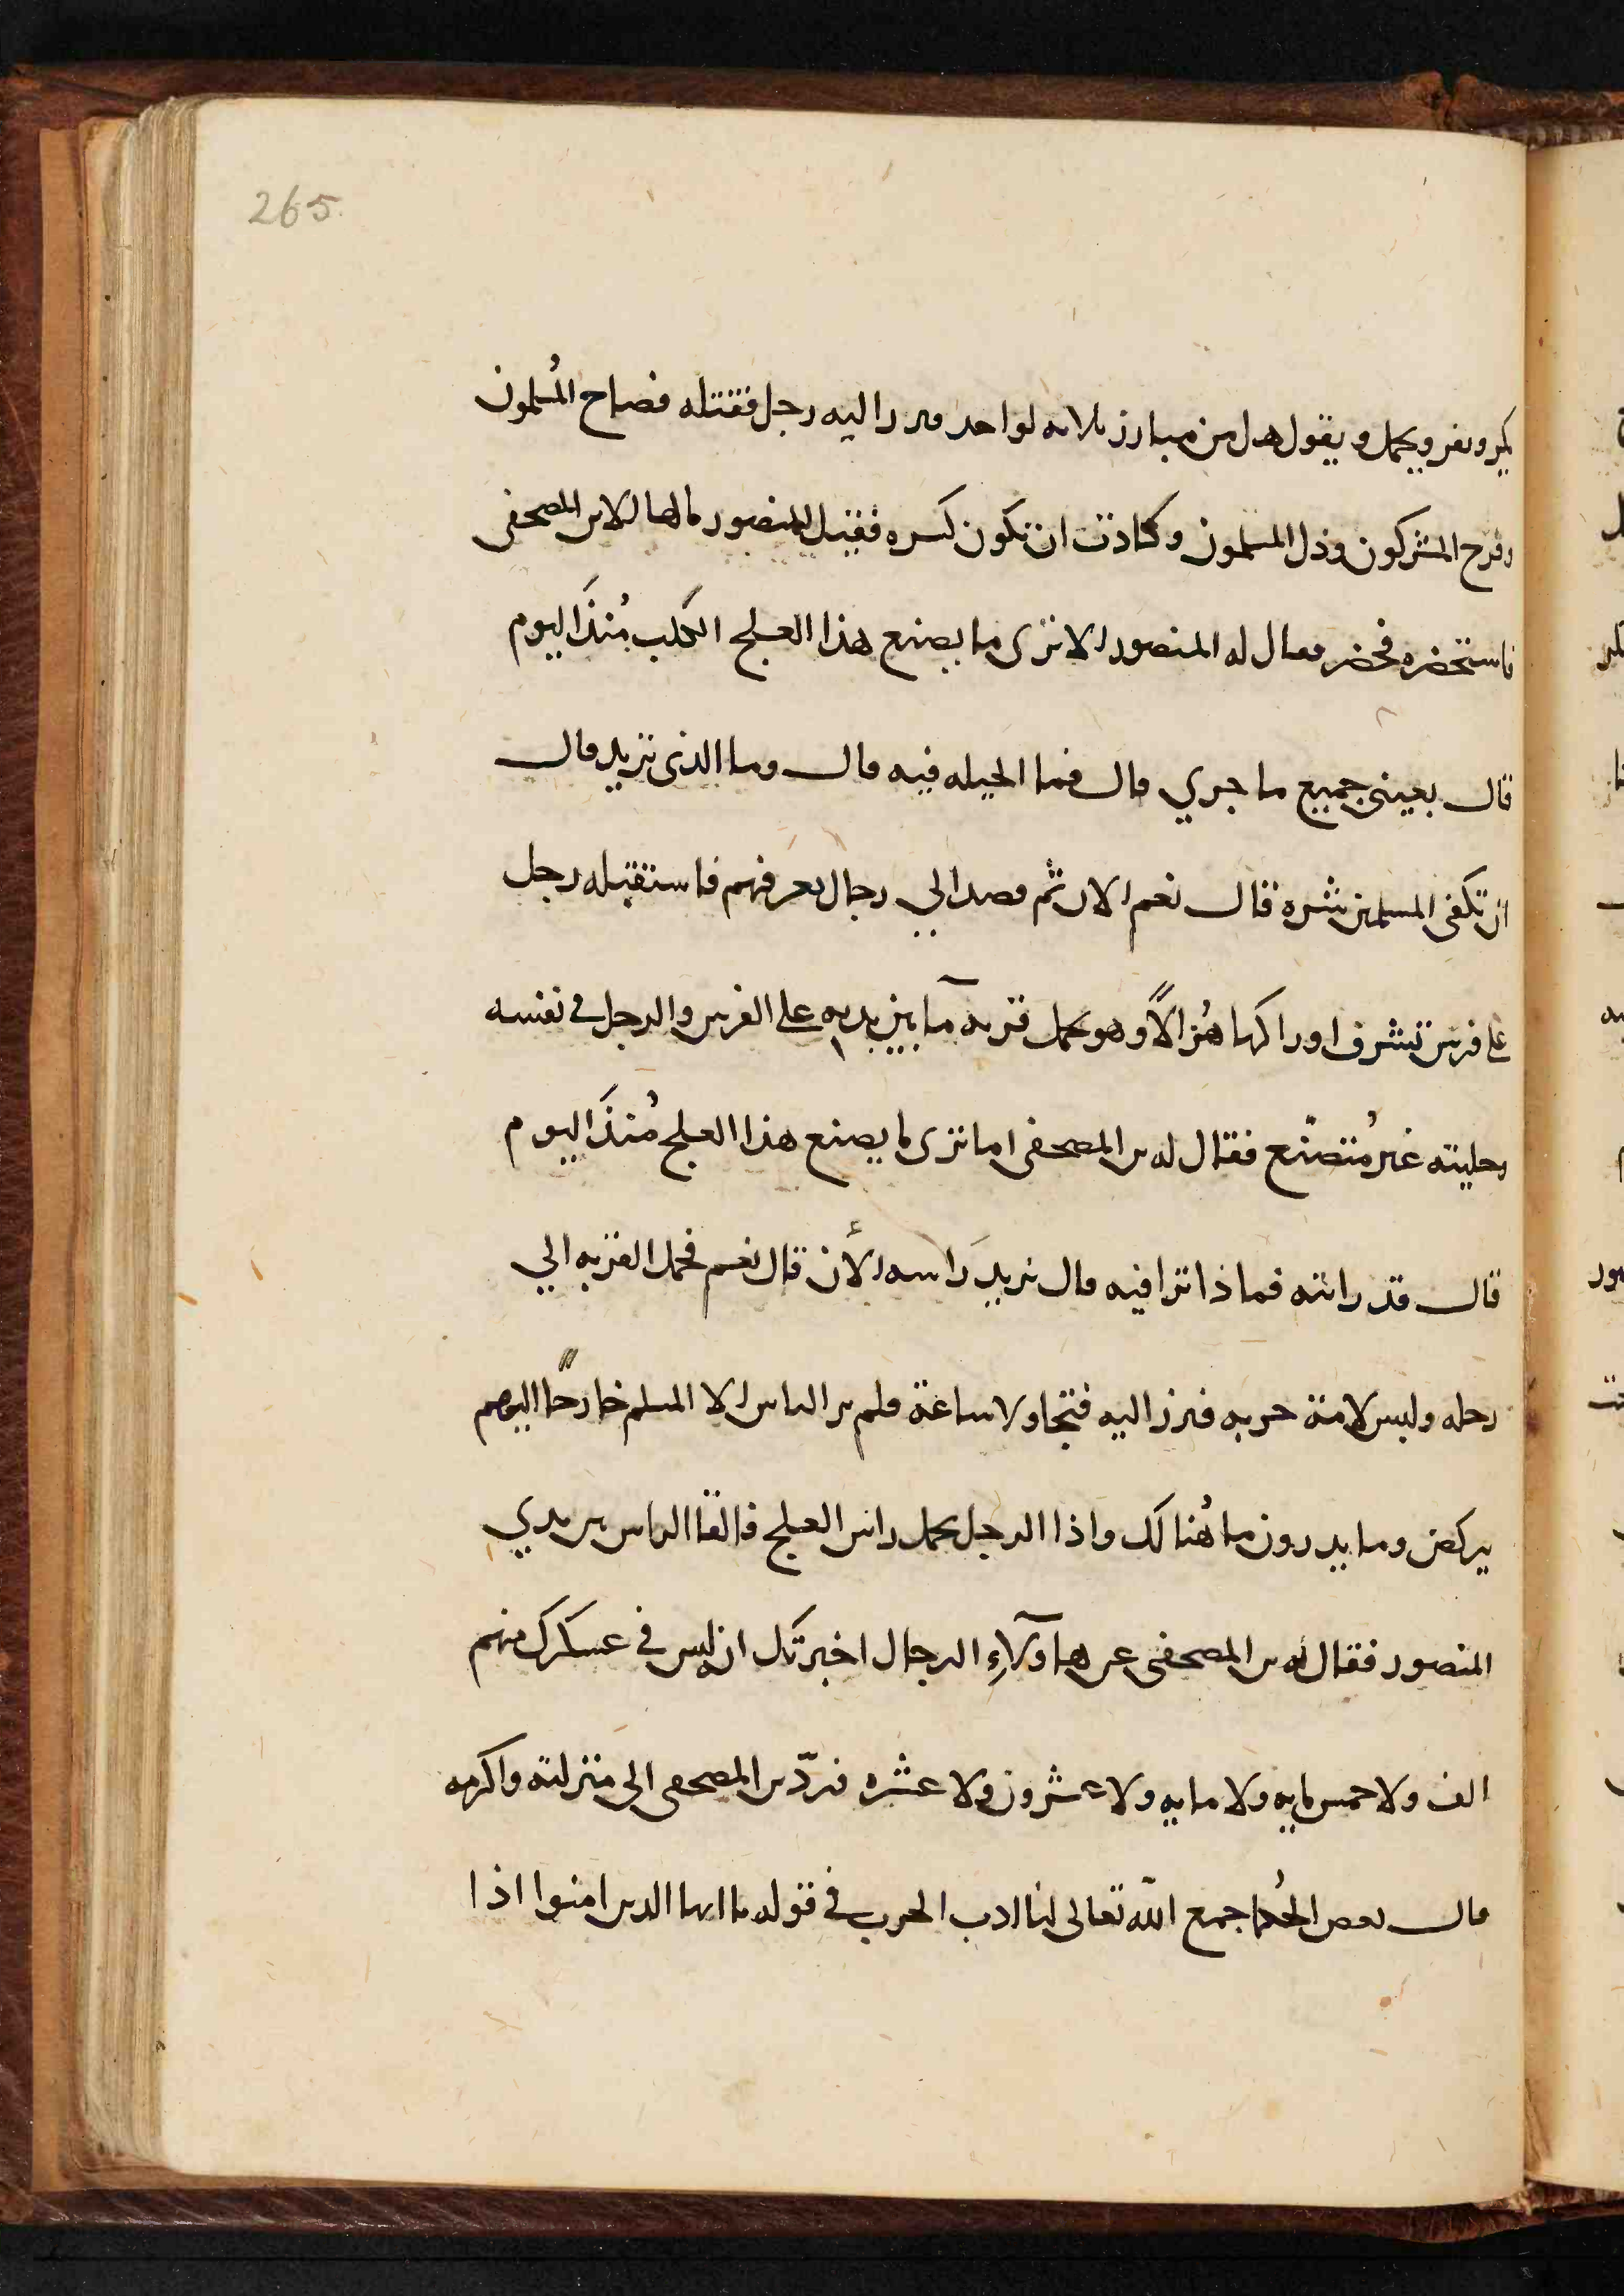 265.
يكر ويفر ويحمل و يقول هل من مبارز ثلاثه لواحد فبرز اليه رجل فقتله فصاح المُسلمون
وفرح المشركون وذل المسلمون وكادت ان تكون كسره فقيل للمنصور مالها الا ابن المصحفى
فاستحضره فحضر فقال له المنصور الا ترى ما يصنع هذا العلج الكلب مُنذَ اليوم
قال بعينى جميع ما جري قال فما الحيله فيه قال وما الذى تريد قال
ان تكفى المسلمين شره قال نعم الان ثم قصد الي رجال يعرفهم فاستقبله رجل
على فرس تشرف اوراكها هُزالاً وهو يحمل قربه مآ بين يديه على الفرس والرجل فى نفسه
وحليته غير مُتصنّع فقال له بن المصحفى اما ترى ما يصنع هذا العلج مُنذَ اليوم
قال قد رايته فماذا ترا فيه قال نريد رَاسه الأن قال نعم فحمل القربه الي
رحله ولبس لامة حربه فبرز اليه فتجاولا ساعة فلم ير الناس الا المسلم خارجًا اليهم
يركض وما يدرون ما هُنالَك واذا الرجل يحمل راس العلج فالقا الراس بين يدي
المنصور فقال له بن المصحفى عن هاؤلآءِ الرجال اخبرتك ان ليس فى عسكرك منهم
الف ولا خمس مايه ولا مايه ولا عشرون ولا عشره فردّ بن المصحفى الى منزلته واكرمه
قال بعض الحُكما جمع الله تعالى لنا ادب الحرب فى قوله يا ايها الذين امنوا اذا